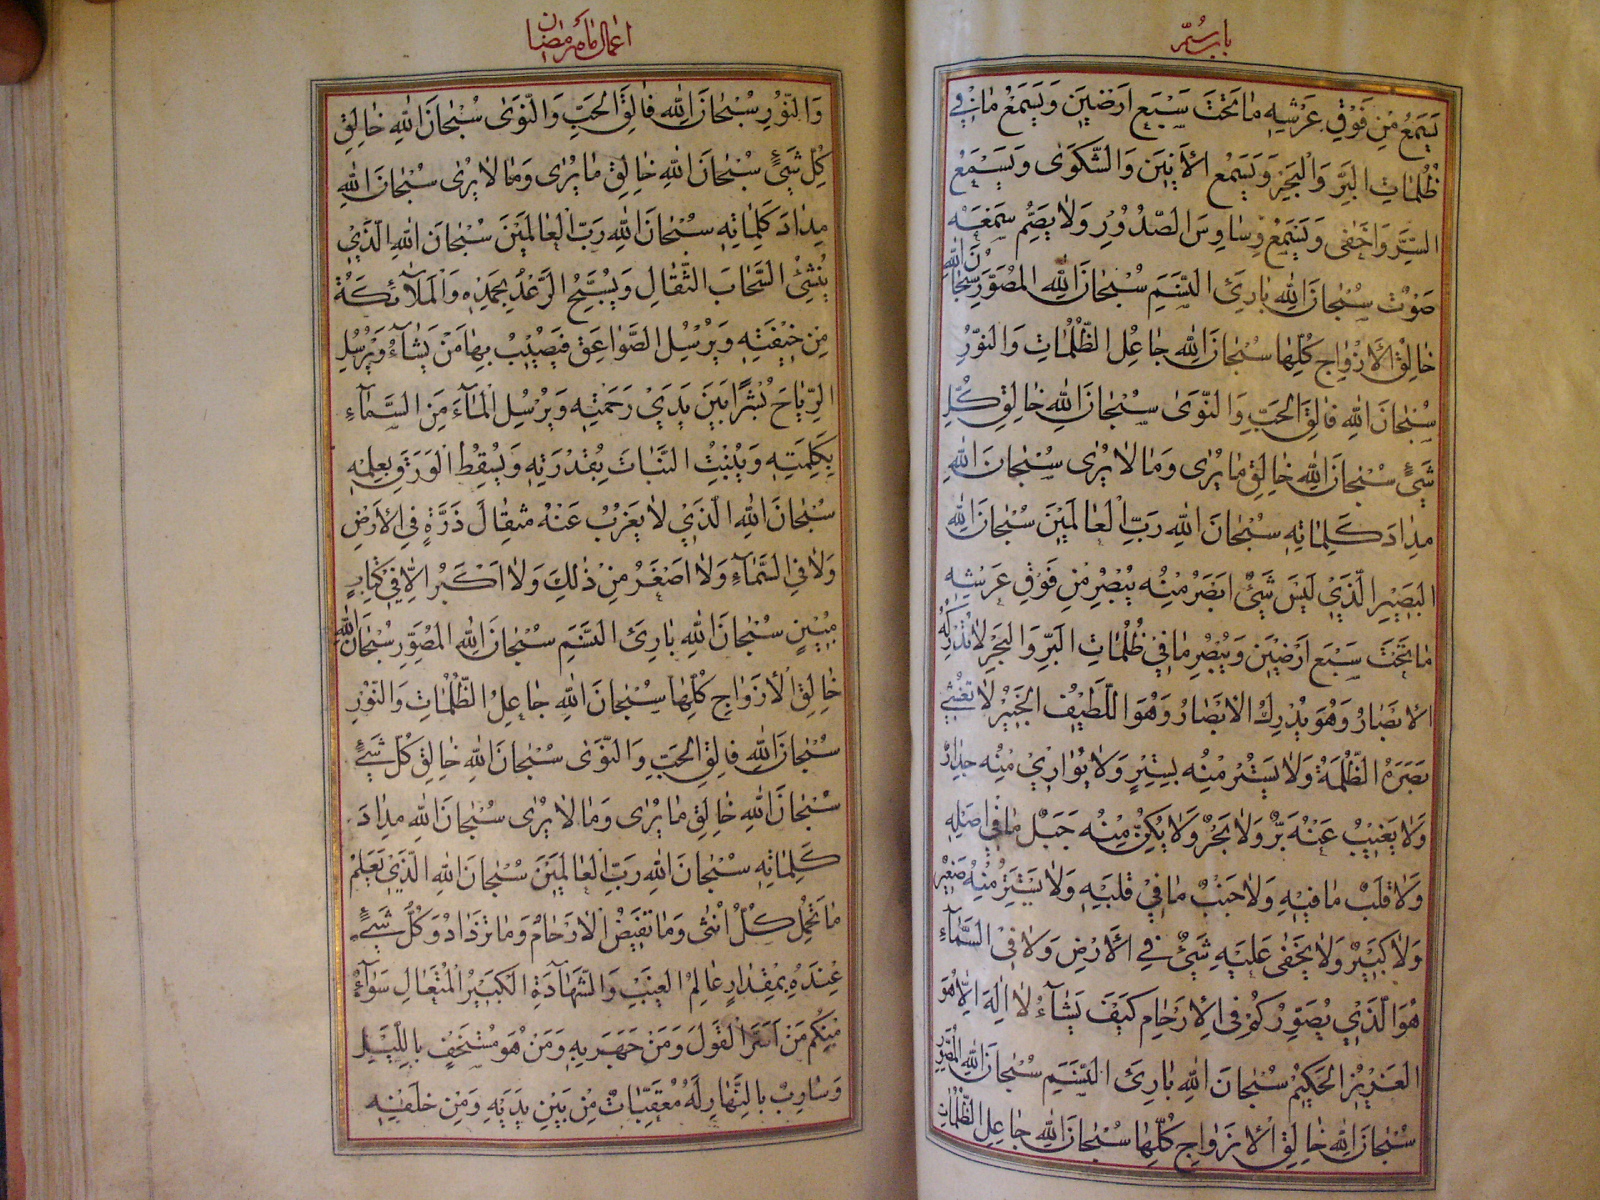 باب سیّم
يَسْمَعُ مِنْ فَوْقِ عَرْشِهِ مَا تَحْتَ سَبْعِ اَرَضِينَ وَيَسْمَعُ مَا فِي
ظُلُمَاتِ الْبَرِّ وَالْبَحْرِ وَيَسْمَعُ الْاَنِينَ وَالشَّكْوٰى وَيَسْمَعُ
السِّرَّ وَاَخْفٰى وَيَسْمَعُ وَسَاوِسَ الصُّدُورِ وَلَا يُصِمُّ سَمْعَهُ
صَوْتٌ سُبْحَانَ اللّٰهِ بَارِئِ النَّسَمِ سُبْحَانَ اللّٰهِ الْمُصَوِّرِ سُبْحَانَ اللّٰهِ
خَالِقِ الْاَزْوَاجِ كُلِّهَا سُبْحَانَ اللّٰهِ جَاعِلِ الظُّلُمَاتِ وَالنُّورِ
سُبْحَانَ اللّٰهِ فَالِقِ الْحَبِّ وَالنَّوٰى سُبْحَانَ اللّٰهِ خَالِقِ كُلِّ
شَيْءٍ سُبْحَانَ اللّٰهِ خَالِقِ مَا يُرٰى وَمَا لَا يُرٰى سُبْحَانَ اللّٰهِ
مِدَادَ كَلِمَاتِهِ سُبْحَانَ اللّٰهِ رَبِّ الْعَالَمِينَ سُبْحَانَ اللّٰهِ
الْبَصِيرِ الَّذِي لَيْسَ شَيْءٌ اَبْصَرَ مِنْهُ يُبْصِرُ مِنْ فَوْقِ عَرْشِهِ
مَا تَحْتَ سَبْعِ اَرَضِينَ وَيُبْصِرُ مَا فِي ظُلُمَاتِ الْبَرِّ وَالْبَحْرِ لَا تُدْرِكُهُ
الْاَبْصَارُ وَهُوَ يُدْرِكُ الْاَبْصَارَ وَهُوَ اللَّطِيفُ الْخَبِيرُ لَا تُغْشِي
بَصَرَهُ الظُّلْمَةُ وَلَا يُسْتَتَرُ مِنْهُ بِسِتْرٍ وَلَا يُوَارِي مِنْهُ جِدَارٌ
وَلَا يَغِيبُ عَنْهُ بَرٌّ وَلَا بَحْرٌ وَلَا يَكُنُّ مِنْهُ جَبَلٌ مَا فِي اَصْلِهِ
وَلَا قَلْبٌ مَا فِيهِ وَلَا جَنْبٌ مَا فِي قَلْبِهِ وَلَا يَسْتَتِرُ مِنْهُ صَغِيرٌ
وَلَا كَبِيرٌ وَلَا يَخْفٰى عَلَيْهِ شَيْءٌ فِي الْاَرْضِ وَلَا فِي السَّمَآءِ
هُوَ الَّذِي يُصَوِّرُكُمْ فِي الْاَرْحَامِ كَيْفَ يَشَآءُ لَا اِلٰهَ اِلَّا هُوَ
الْعَزِيزُ الْحَكِيمُ سُبْحَانَ اللّٰهِ بَارِئِ النَّسَمِ سُبْحَانَ اللّٰهِ الْمُصَوِّرِ
سُبْحَانَ اللّٰهِ خَالِقِ الْاَزْوَاجِ كُلِّهَا سُبْحَانَ اللّٰهِ جَاعِلِ الظُّلُمَاتِ
اعمال ماه رمضان
وَالنُّورِ سُبْحَانَ اللّٰهِ فَالِقِ الْحَبِّ وَالنَّوٰى سُبْحَانَ اللّٰهِ خَالِقِ
كُلِّ شَيْءٍ سُبْحَانَ اللّٰهِ خَالِقِ مَا يُرٰى وَمَا لَا يُرٰى سُبْحَانَ اللّٰهِ
مِدَادَ كَلِمَاتِهِ سُبْحَانَ اللّٰهِ رَبِّ الْعَالَمِينَ سُبْحَانَ اللّٰهِ الَّذِي
يُنْشِئُ السَّحَابَ الثِّقَالِ وَيُسَبِّحُ الرَّعْدُ بِحَمْدِهِ وَالْمَلَآئِكَةُ
مِنْ خِيفَتِهِ وَيُرْسِلُ الصَّوَاعِقَ فَيُصِيبُ بِهَا مَنْ يَشَآءُ وَيُرْسِلُ
الرِّيَاحَ بُشْرًا بَيْنَ يَدَيْ رَحْمَتِهِ وَيُرْسِلُ الْمَآءَ مِنَ السَّمَآءِ
بِكَلِمَتِهِ وَيُنْبِتُ النَّبَاتَ بِقُدْرَتِهِ وَيُسْقِطُ الْوَرَقَ بِعِلْمِهِ
سُبْحَانَ اللّٰهِ الَّذِي لَا يَعْزُبُ عَنْهُ مِثْقَالُ ذَرَّةٍ فِي الْاَرْضِ
وَلَا فِي السَّمَآءِ وَلَا اَصْغَرُ مِنْ ذٰلِكَ وَلَا اَكْبَرُ اِلَّا فِي كِتَابٍ
مُبِينٍ سُبْحَانَ اللّٰهِ بَارِئِ النَّسَمِ سُبْحَانَ اللّٰهِ الْمُصَوِّرِ سُبْحَانَ اللّٰهِ
خَالِقِ الْاَزْوَاجِ كُلِّهَا سُبْحَانَ اللّٰهِ جَاعِلِ الظُّلُمَاتِ وَالنُّورِ
سُبْحَانَ اللّٰهِ فَالِقِ الْحَبِّ وَالنَّوٰى سُبْحَانَ اللّٰهِ خَالِقِ كُلِّ شَيْءٍ
سُبْحَانَ اللّٰهِ خَالِقِ مَا يُرٰى وَمَا لَا يُرٰى سُبْحَانَ اللّٰهِ مِدَادَ
كَلِمَاتِهِ سُبْحَانَ اللّٰهِ رَبِّ الْعَالَمِينَ سُبْحَانَ اللّٰهِ الَّذِي يَعْلَمُ
مَا تَحْمِلُ كُلُّ اُنْثٰى وَمَا تَغِيضُ الْاَرْحَامُ وَمَا تَزْدَادُ وَكُلُّ شَيْءٍ
عِنْدَهُ بِمِقْدَارٍ عَالِمُ الْغَيْبِ وَالشَّهَادَةِ الْكَبِيرُ الْمُتَعَالِ سَوَآءٌ
مِنْكُمْ مَنْ اَسَرَّ الْقَوْلَ وَمَنْ جَهَرَ بِهِ وَمَنْ هُوَ مُسْتَخْفٍ بِاللَّيْلِ
وَسَارِبٌ بِالنَّهَارِ لَهُ مُعَقِّبَاتٌ مِنْ بَيْنِ يَدَيْهِ وَمِنْ خَلْفِهِ